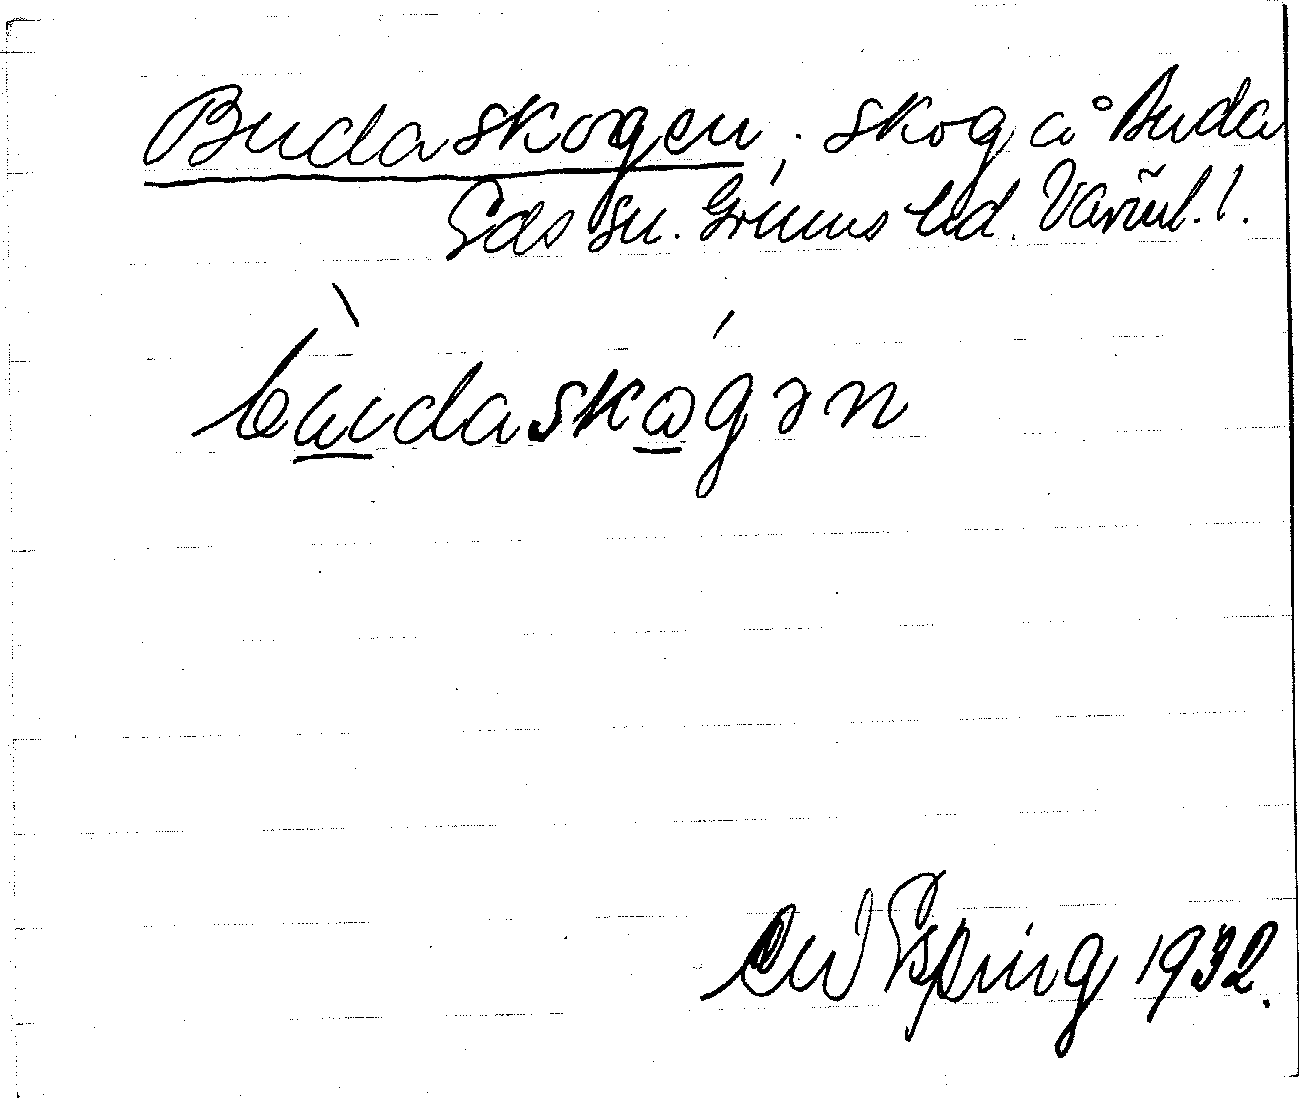 Budaskogen, skog å Buda
Eds sn. Grums hd. Värml. l.
bùudaskógən
Espring 1932.